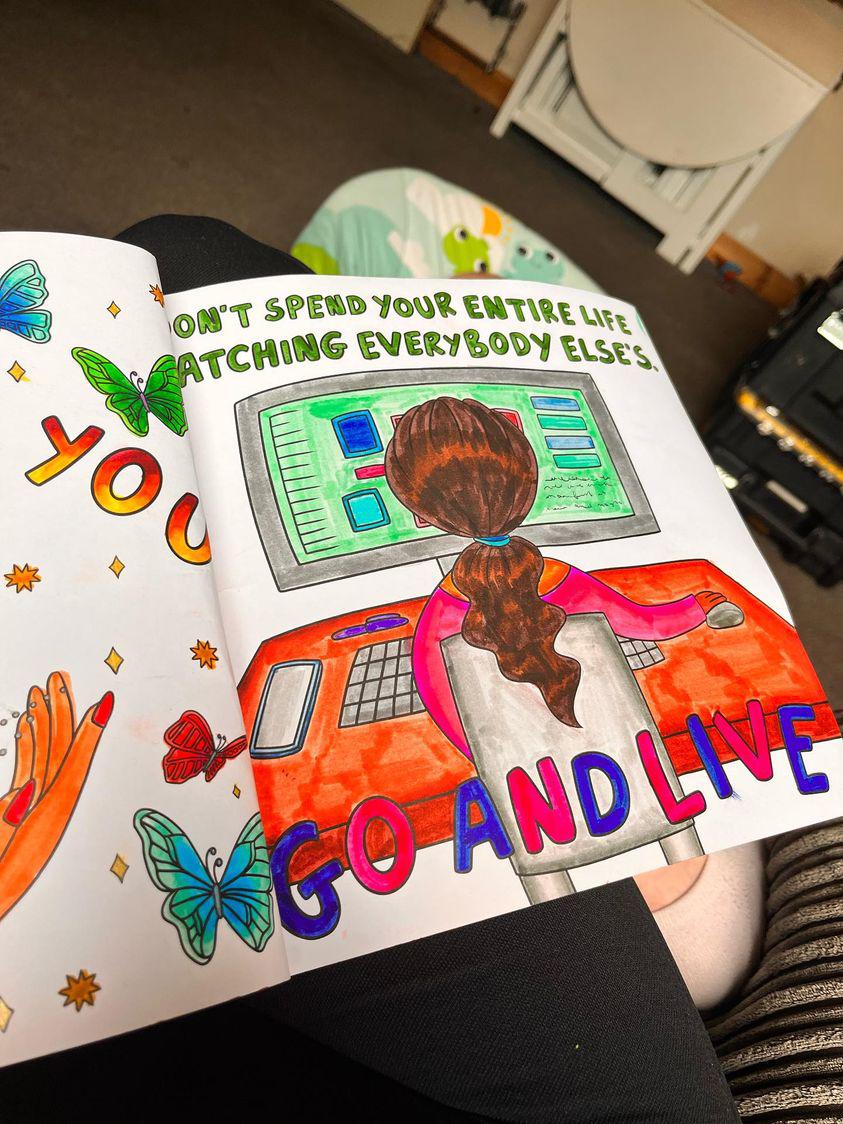 YOU
ON'T SPEND YOUR ENTIRE LIFE
ATCHING EVERYBODY ELSE'S.
GO AND LIVE